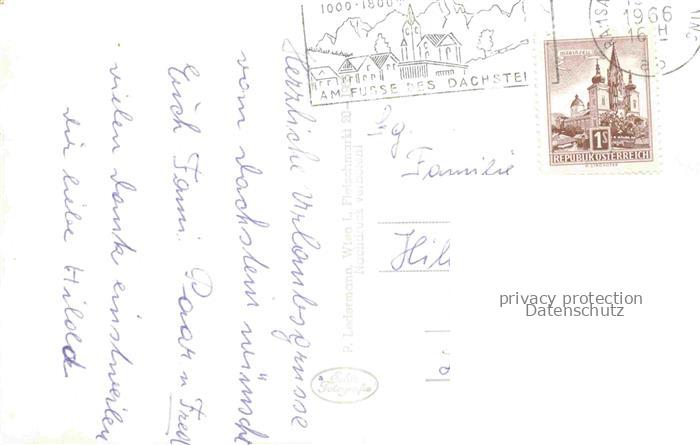 1000-1800
AM FUSSE DES DACHSTEI
RAMSA
1966
16 H
MARIAZELL
1S
REPUBLIK ÖSTERREICH
Herzliche Urlaubsgrüsse
vom Dachstein wünscht
Euch Fam. Paar u Fredl
vielen Dank einstweilen
die liebe Hilde
P. Ledermann, Wien I, Fleischmarkt 20
Nachdruck verboten!
Echte
Fotografie
Familie
Hil
privacy protection
Datenschutz